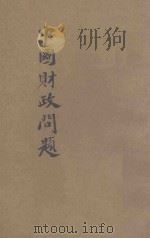 國財政問題
研狗
mtou.info